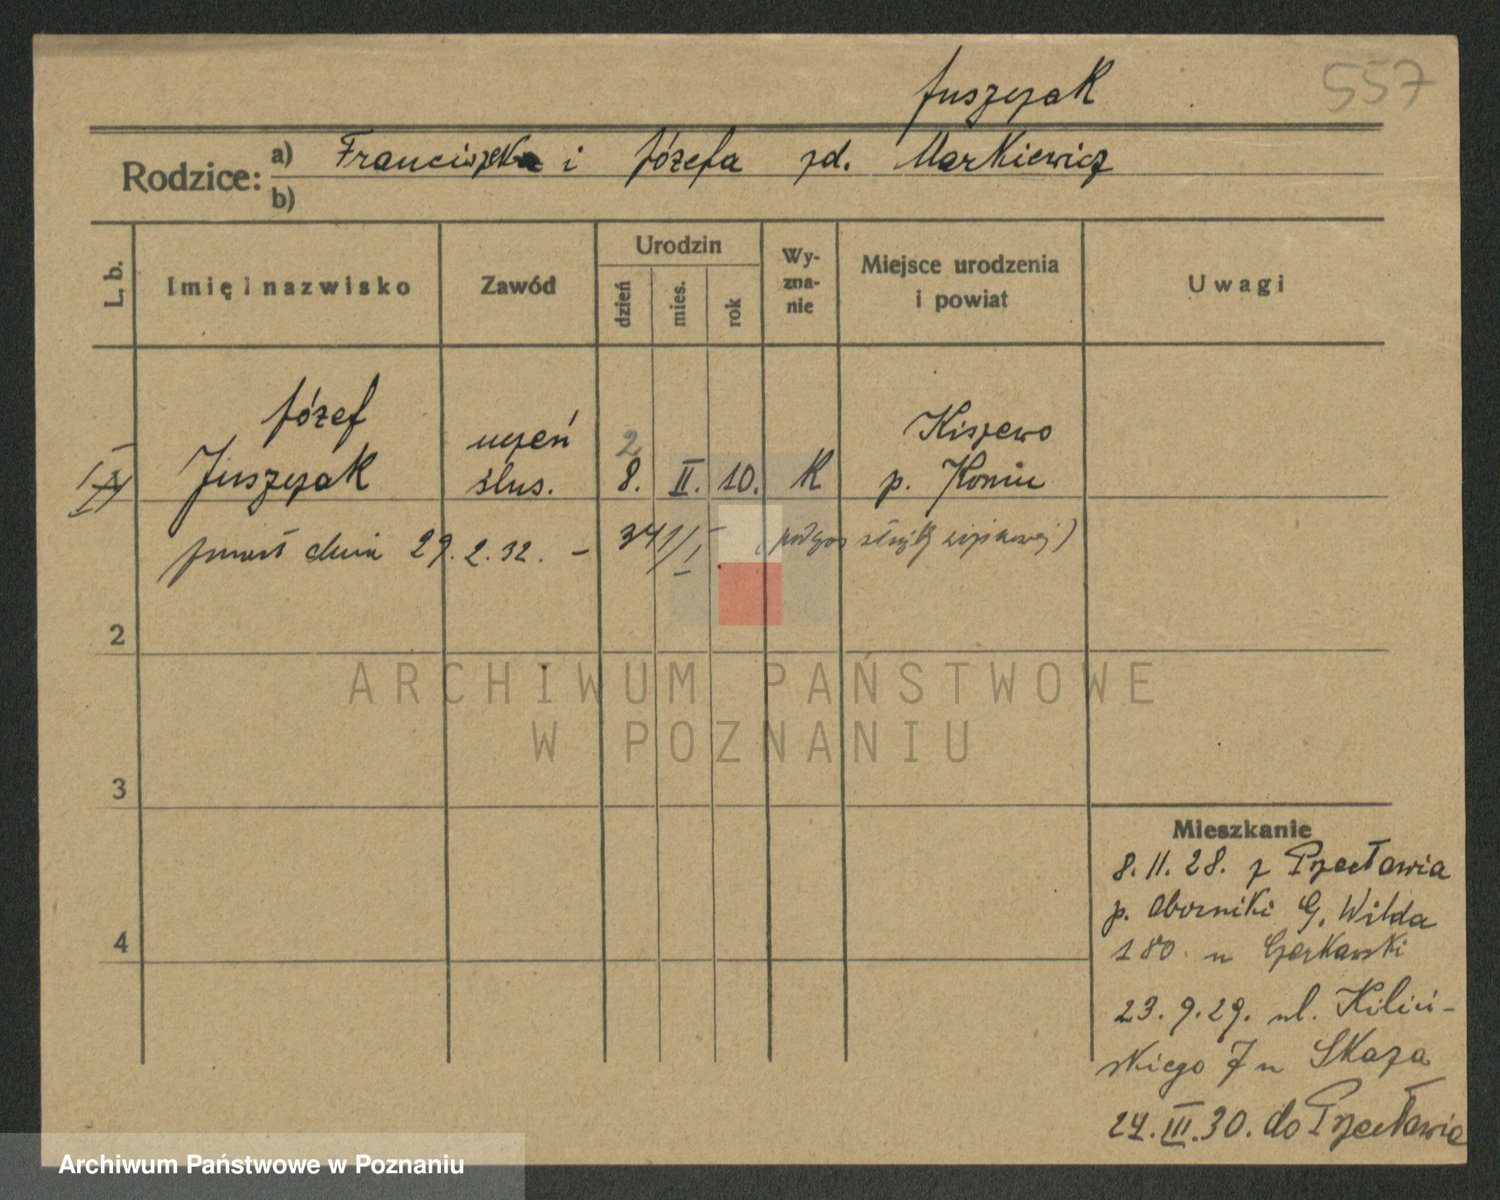 Juszczak
557
Rodzice: a) Franciszka i Józefa zd. Markiewicz
b)
L. b.
Imię i nazwisko
Zawód
Urodzin
dzień
mies.
rok
Wy-
zna-
nie
Miejsce urodzenia
i powiat
Uwagi
Józef
Juszczak
uczeń
ślus.
2
8. II. 10.
K
Kiszewo
p. Konin
zmarł dnia 29.2.32. –
2
3
4
Mieszkanie
8. 11. 28. z Przecławia
p. Oborniki G. Wilda
180 u
23. 9. 29. ul. Kiliń-
skiego 7 u Skaza
24. III. 30. do Przecławia
ARCHIWUM PAŃSTWOWE
W POZNANIU
Archiwum Państwowe w Poznaniu